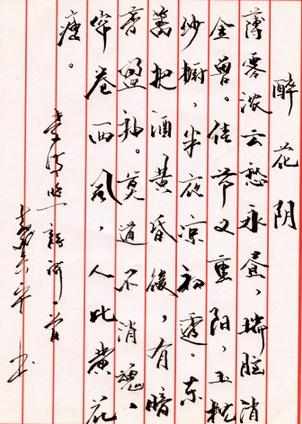 醉花阴
薄雾浓云愁永昼，瑞脑消
金兽。佳节又重阳，玉枕
纱橱，半夜凉初透。东
篱把酒黄昏後，有暗
香盈袖。莫道不消魂，
帘卷西风，人比黄花
瘦。
李清照詩词一首
书